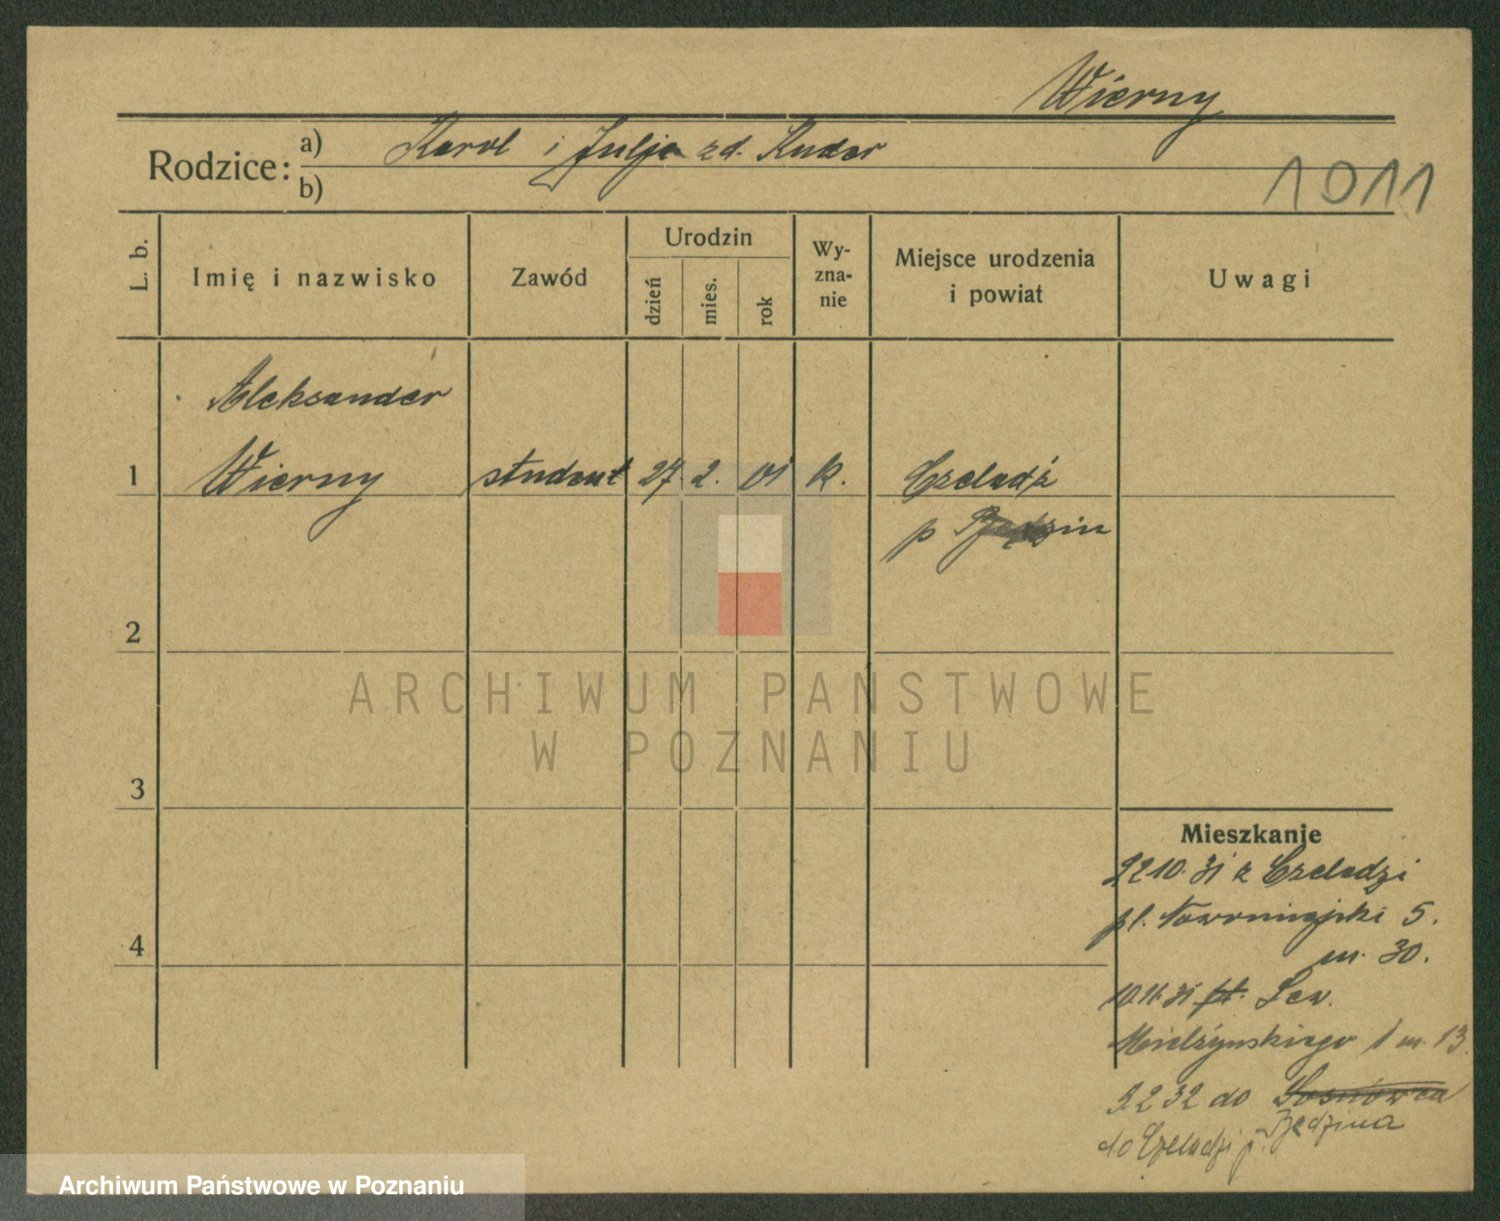 Wierny
Rodzice: a) Karol i Julja zd. Kuder
b)
1011
L. b.
Imię i nazwisko
Zawód
Urodzin
dzień
mies.
rok
Wy-
zna-
nie
Miejsce urodzenia
i powiat
Uwagi
Aleksander
1 Wierny student 27. 2. 01 k. Czeladź
p Będzin
2
3
4
ARCHIWUM PAŃSTWOWE
W POZNANIU
Mieszkanie
22 10. 31 z Czeladzi
pl. Nowomiejski 5.
m. 30.
10.11.31 Sew.
Mielżyńskiego 1 m. 13.
2 32 do Sosnowca
Będzina
do Czeladzi p.
Archiwum Państwowe w Poznaniu